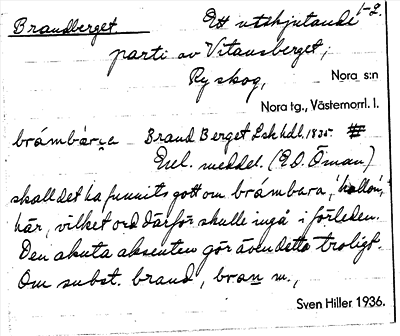 Brandberget. Ett utskjutande 1-2.
parti av Vitansberget,
Ryskog, Nora s:n
Nora tg., Västernorrl. l.
brámbärţe Brand Berget Lskhdl. 1835.
Enl. meddel. (E.D. Öman)
skall det ha funnits gott om brámbara, 'hallon',
här, vilket ord därför skulle ingå i förleden.
Den akuta aksenten gör även detta troligt.
Om subst. brand, bran m.,
Sven Hiller 1936.